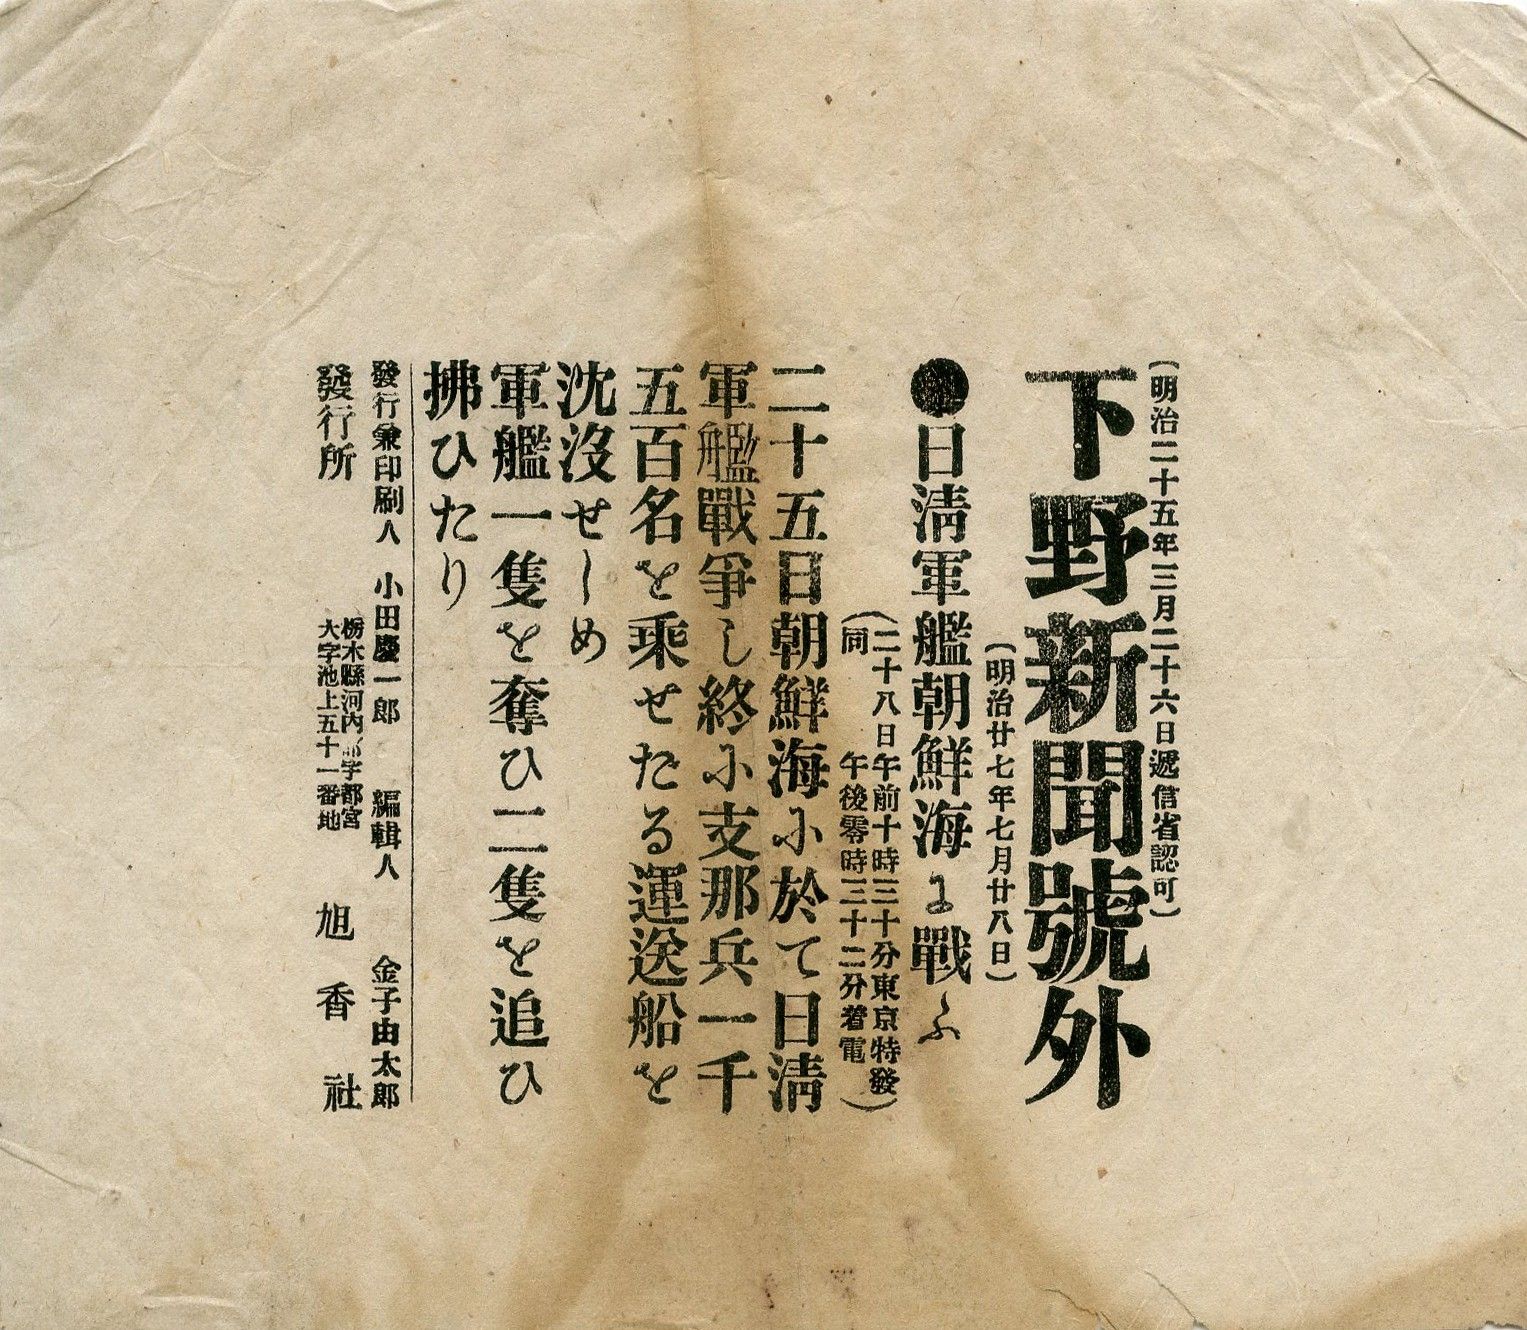 (明治二十五年三月二十六日遞信省認可)
下野新聞號外
(明治廿七年七月廿八日)
●日淸軍艦朝鮮海に戰ふ
(二十八日午前十時三十分東京特發)
(同 午後零時三十二分着電)
二十五日朝鮮海に於て日淸
軍艦戰爭し終に支那兵一千
五百名を乘せたる運送船を
沈沒せしめ
軍艦一隻を奪ひ二隻を追ひ
拂ひたり
發行兼印刷人 小田慶一郎 編輯人 金子由太郎
栃木縣河内郡宇都宮
大字池上五十一番地
發行所 旭香社